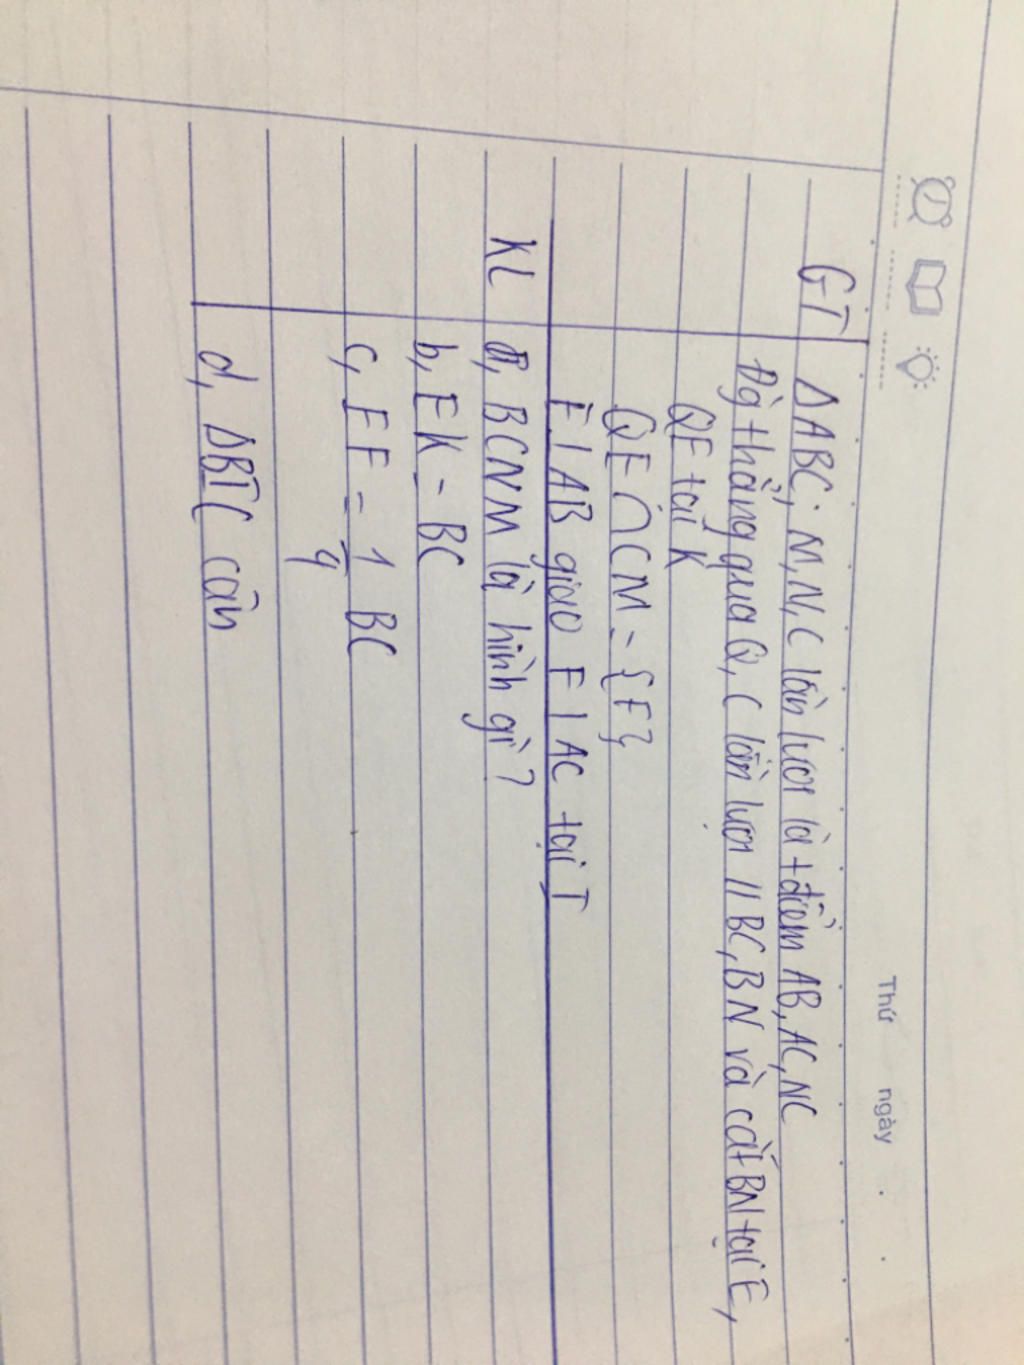 Thứ ngày
GT ΔABC; M, N, C lần lượt là tđiểm AB, AC, NC
Đg thẳng qua Q, C lần lượt // BC, BN và cắt BN tại E,
QE tại K
QE ∩ CM = {F}
E ⊥ AB giao F ⊥ AC tại I
KL a, BCNM là hình gì?
b, EK = BC
c, EF = 1/4 BC
d, ΔBIC cân